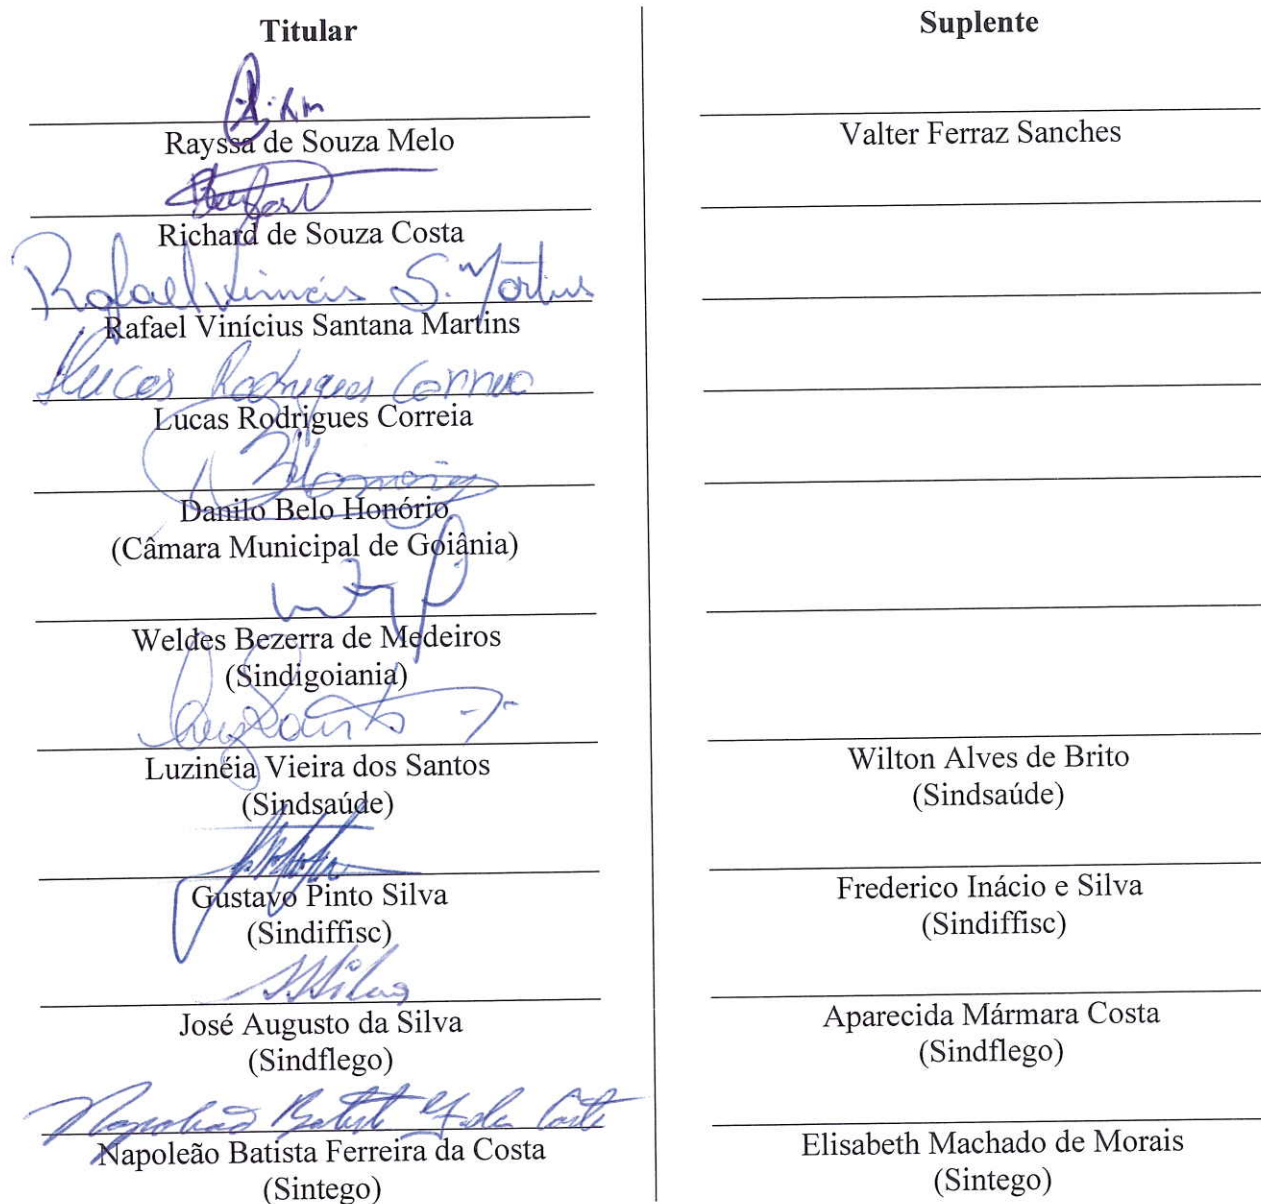 Titular
Rayssa de Souza Melo
Richard de Souza Costa
Rafael Vinicius S. Martins
Rafael Vinícius Santana Martins
Lucas Rodrigues Correia
Lucas Rodrigues Correia
Danilo Belo Honório
(Câmara Municipal de Goiânia)
Weldes Bezerra de Medeiros
(Sindigoiania)
Luzinéia Vieira dos Santos
(Sindsaúde)
Gustavo Pinto Silva
(Sindiffisc)
José Augusto da Silva
(Sindflego)
Napoleão Batista F. da Costa
Napoleão Batista Ferreira da Costa
(Sintego)
Suplente
Valter Ferraz Sanches
Wilton Alves de Brito
(Sindsaúde)
Frederico Inácio e Silva
(Sindiffisc)
Aparecida Mármara Costa
(Sindflego)
Elisabeth Machado de Morais
(Sintego)